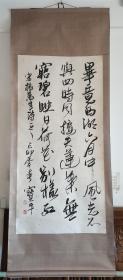 畢竟西湖六月中風光不
與四時同接天蓮葉無
窮碧映日荷花別樣紅
宋楊萬里詩 己卯